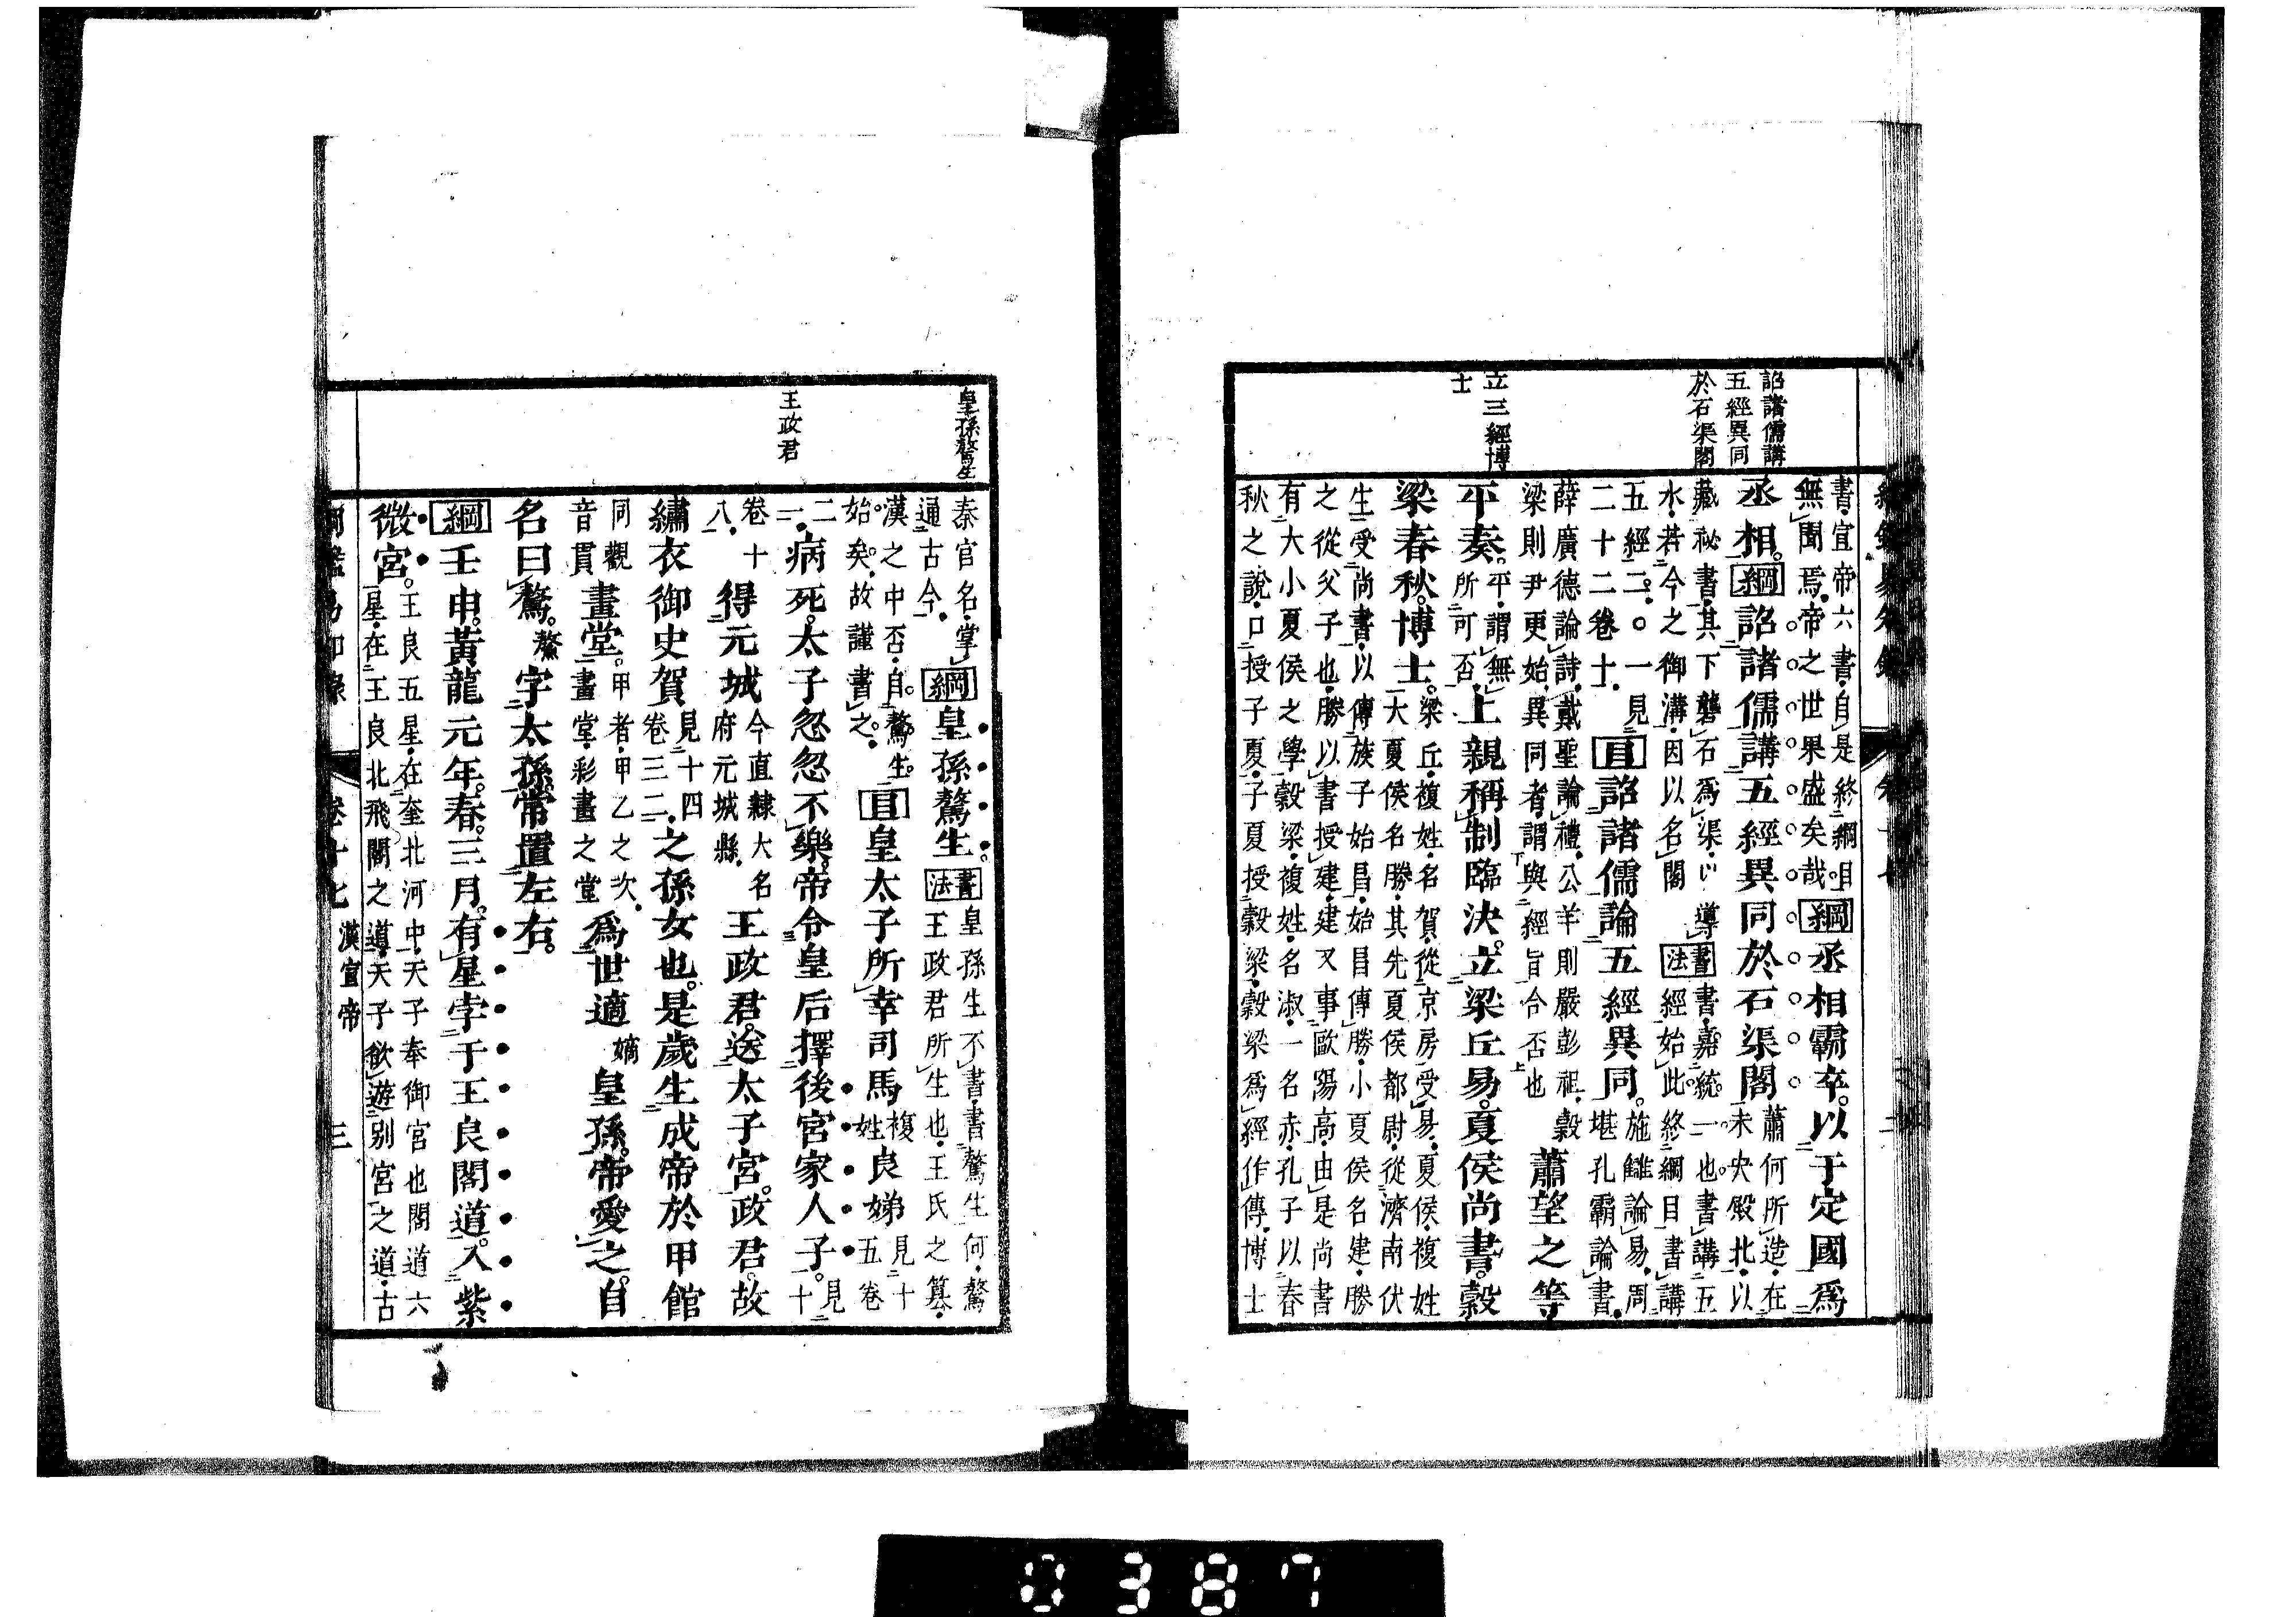 詔諸儒講
五經異同
於石渠閣
立三經博
士
書宜帝六書自是終綱目
無聞焉帝之世果盛矣哉
綱丞相霸卒以于定國爲
丞相綱詔諸儒講五經異同於石渠閣
蕭何所造在
未央殿北以
藏祕書其下礱石爲渠以導
水若今之御溝因以名閣
書法
書嘉統一也書講五
經始此終綱目書講
五經二○一見
二十二卷十
目詔諸儒論五經異同
施讎論易周
堪孔霸論書
薛廣德論詩戴聖論禮公羊則嚴彭祖穀
梁則尹更始異同者謂與經旨合否也
蕭望之等
平奏
平謂無
所可否
上親稱制臨決立梁丘易夏侯尚書穀
梁春秋博士
梁丘複姓名賀從京房受易夏侯複姓
大夏侯名勝其先夏侯都尉從濟南伏
生受尚書以傳族子始昌始昌傳勝小夏侯名建勝
之從父子也勝以書授建建又事歐陽高由是尚書
有大小夏侯之學穀梁複姓名淑一名赤孔子以春
秋之說口授子夏子夏授穀梁穀梁爲經作傳博士
皇孫驁生
王政君
秦官名掌
通古今
綱皇孫驁生
書法
皇孫生不書書驁生何驁
王政君所生也王氏之篡
漢之中否自驁生
始矣故謹書之
目皇太子所幸司馬
複
姓
良娣
見十
五卷
二
一
病死太子忽忽不樂帝令皇后擇後宮家人子
見
十
卷十
八
得元城
今直隸大名
府元城縣
王政君送太子宮政君故
繡衣御史賀
見十四
卷三二
之孫女也是歲生成帝於甲館
同觀
音貫
畫堂
甲者甲乙之次
畫堂彩畫之堂
爲世適嫡皇孫帝愛之自
名曰驁驁字太孫常置左右
綱壬申黃龍元年春三月有星孛于王良閣道入紫
微宮
王良五星在奎北河中天子奉御宮也閣道六
星在王良北飛閣之道天子欲遊別宮之道古
綱鑑易知錄 卷十七 漢宣帝 三
0387